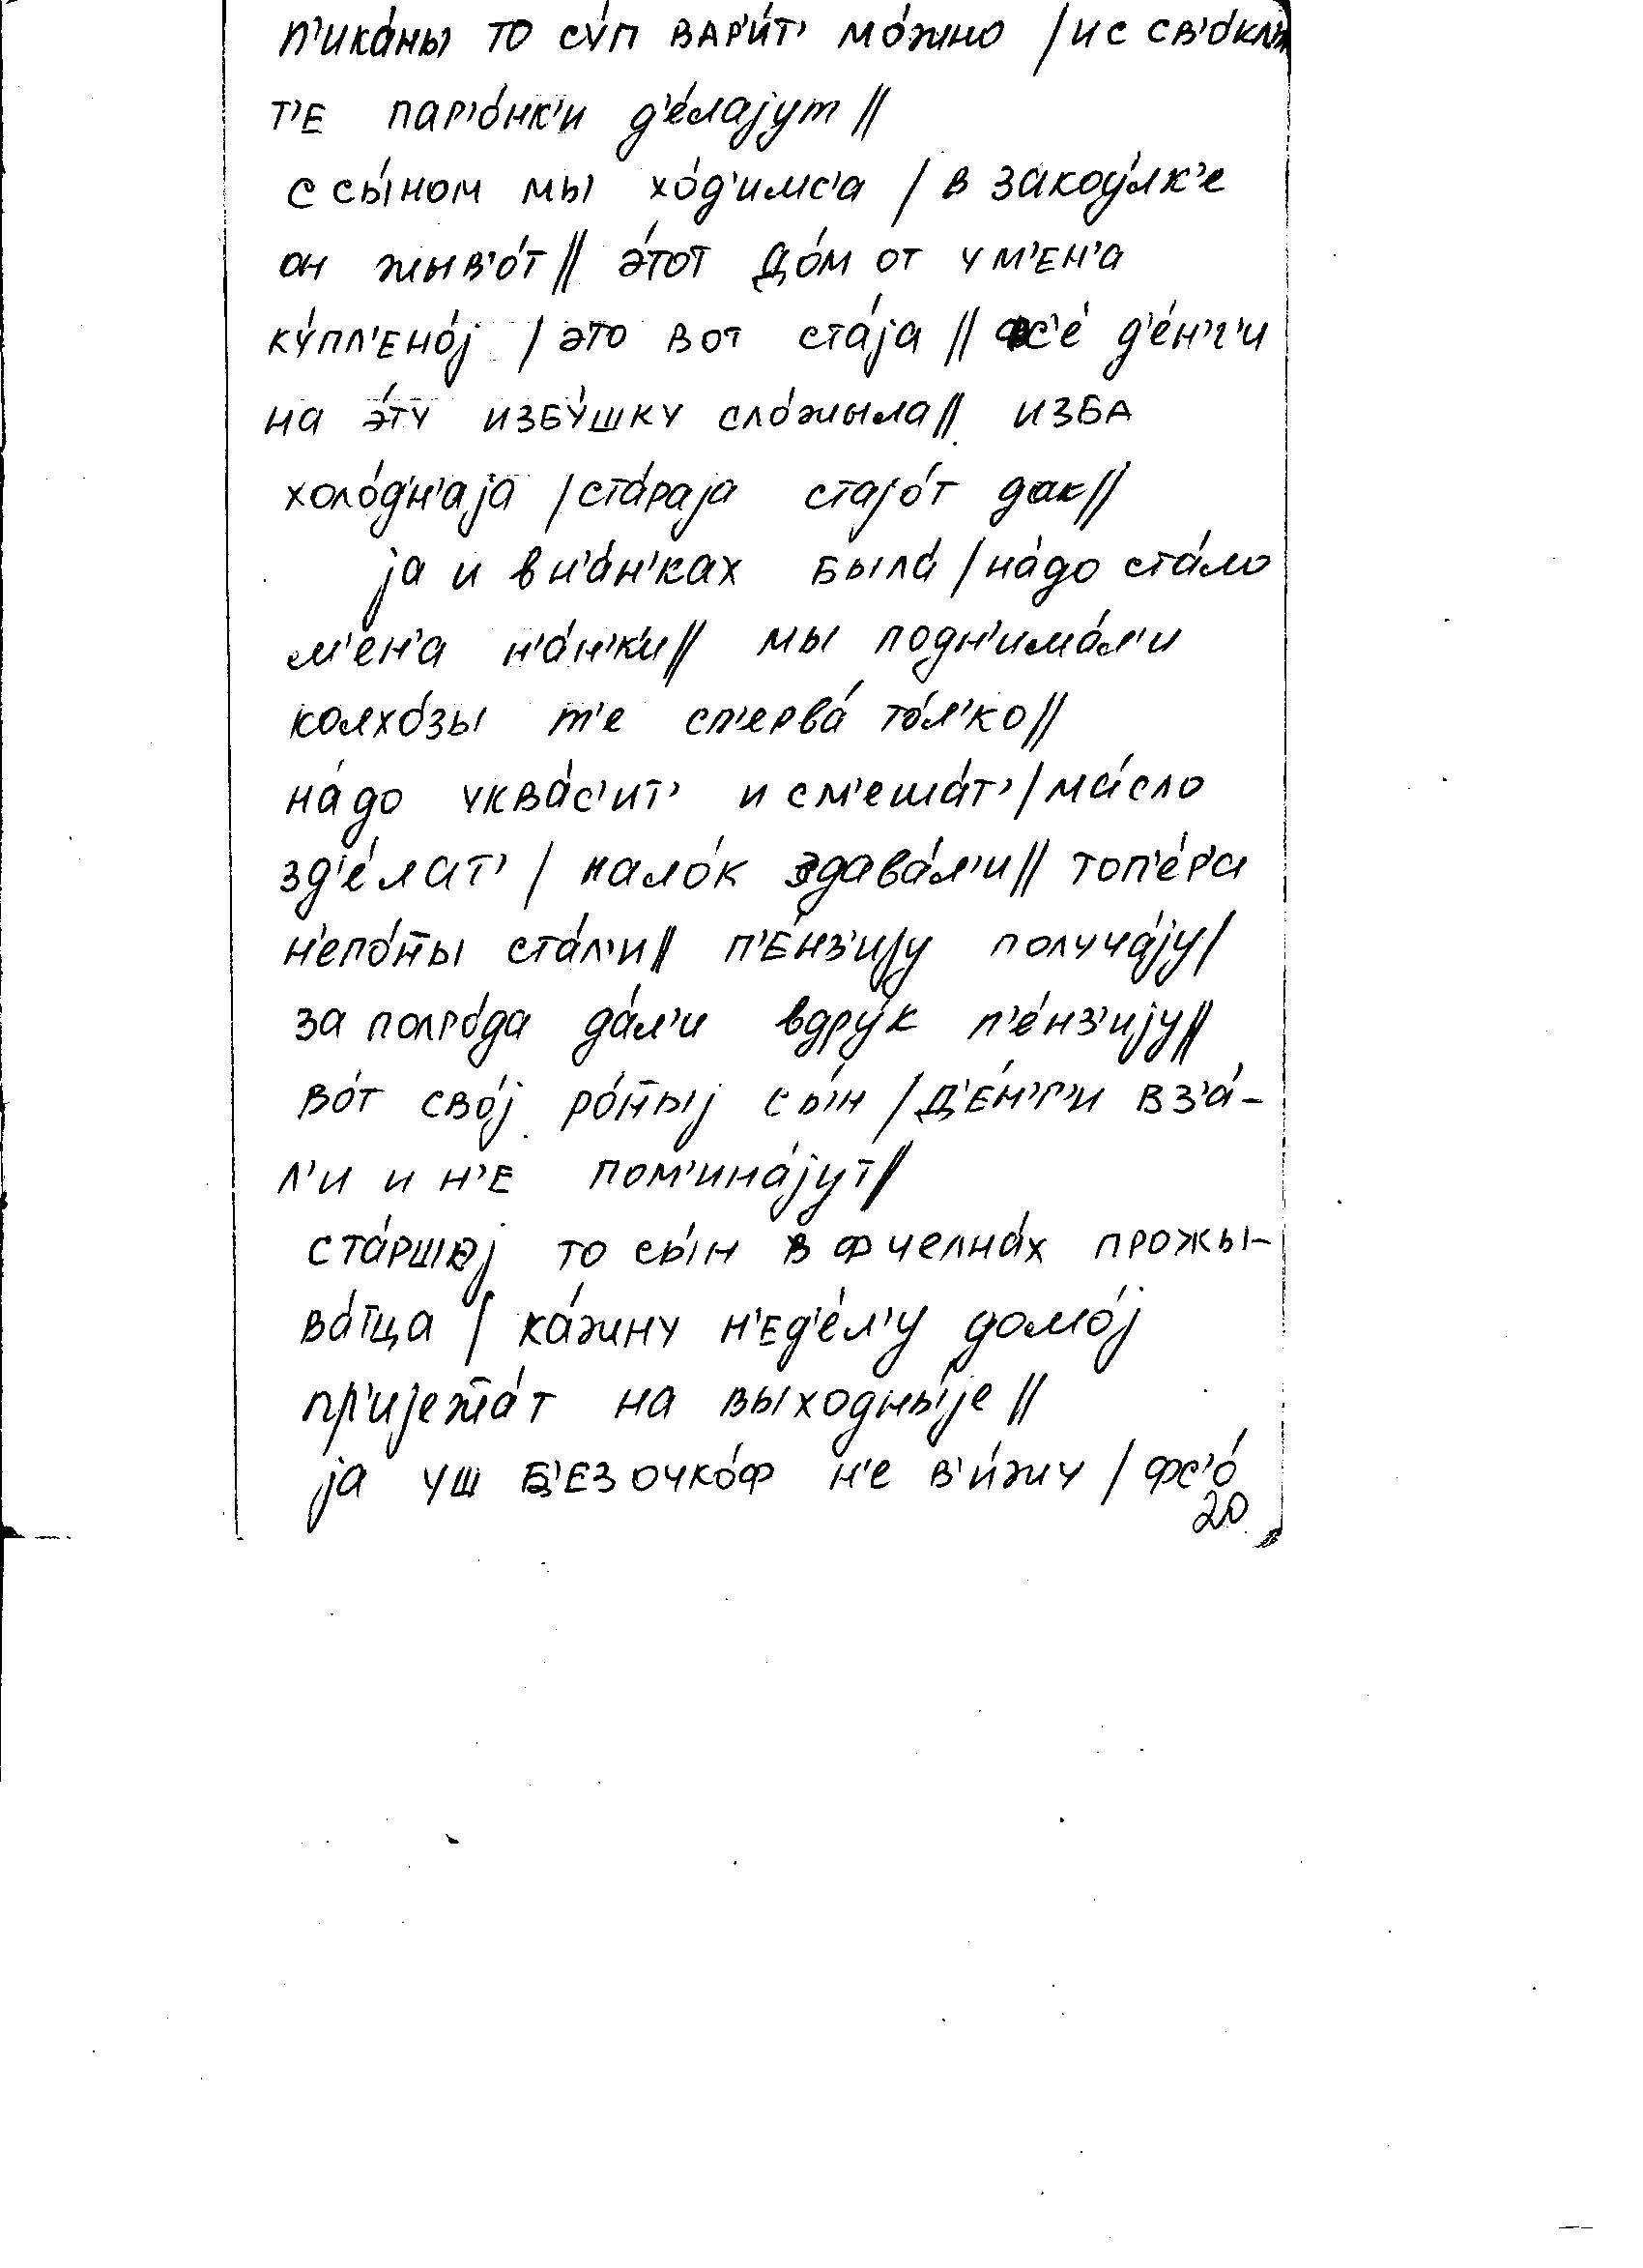 п'ика́ны то су́п вар'и́т' мо́жно / ис св'о́клы
т'е пар'о́нк'и д'е́лаjут //
с сы́ном мы хо́д'имс'а / в закоу́лк'е
он жыв'о́т // э́тот до́м от у м'ен'а
ку́пл'ено́j / это вот ста́jа // фс'е́ д'е́н'г'и
на э́ту избу́шку сло́жыла // изба
холо́д'н'аjа / ста́раjа стаjо́т дак //
jа и в н'а́н'ках была́ / на́до ста́ло
м'ен'а н'а́н'к'и // мы подн'има́л'и
колхо́зы т'е сп'ерва́ то́л'ко //
на́до уква́с'ит' и см'еша́т' / ма́сло
зд'е́лат' / нало́к здава́л'и // топ'е́р'а
н'еро́н̄ы ста́л'и // п'е́нз'иjу получа́jу /
за полго́да да́л'и вдру́к п'е́нз'иjу //
во́т сво́j ро́н̄ыj сы́н / д'е́н'г'и вз'а́-
л'и и н'е пом'ина́jут //
ста́ршоj то сы́н в ф челна́х прожы-
ва́т̄ца / ка́жну н'ед'е́л'у домо́j
пр'иjеж̄а́т на выходны́jе //
jа уш б'ез очко́ф н'е в'и́жу / фс'о́
20